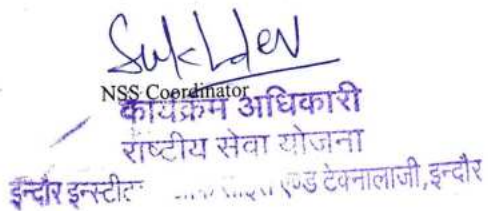 Sukhdev
NSS Coordinator
कार्यक्रम अधिकारी
राष्ट्रीय सेवा योजना
इन्दौर इन्स्टीट एण्ड टेक्नालाजी, इन्दौर